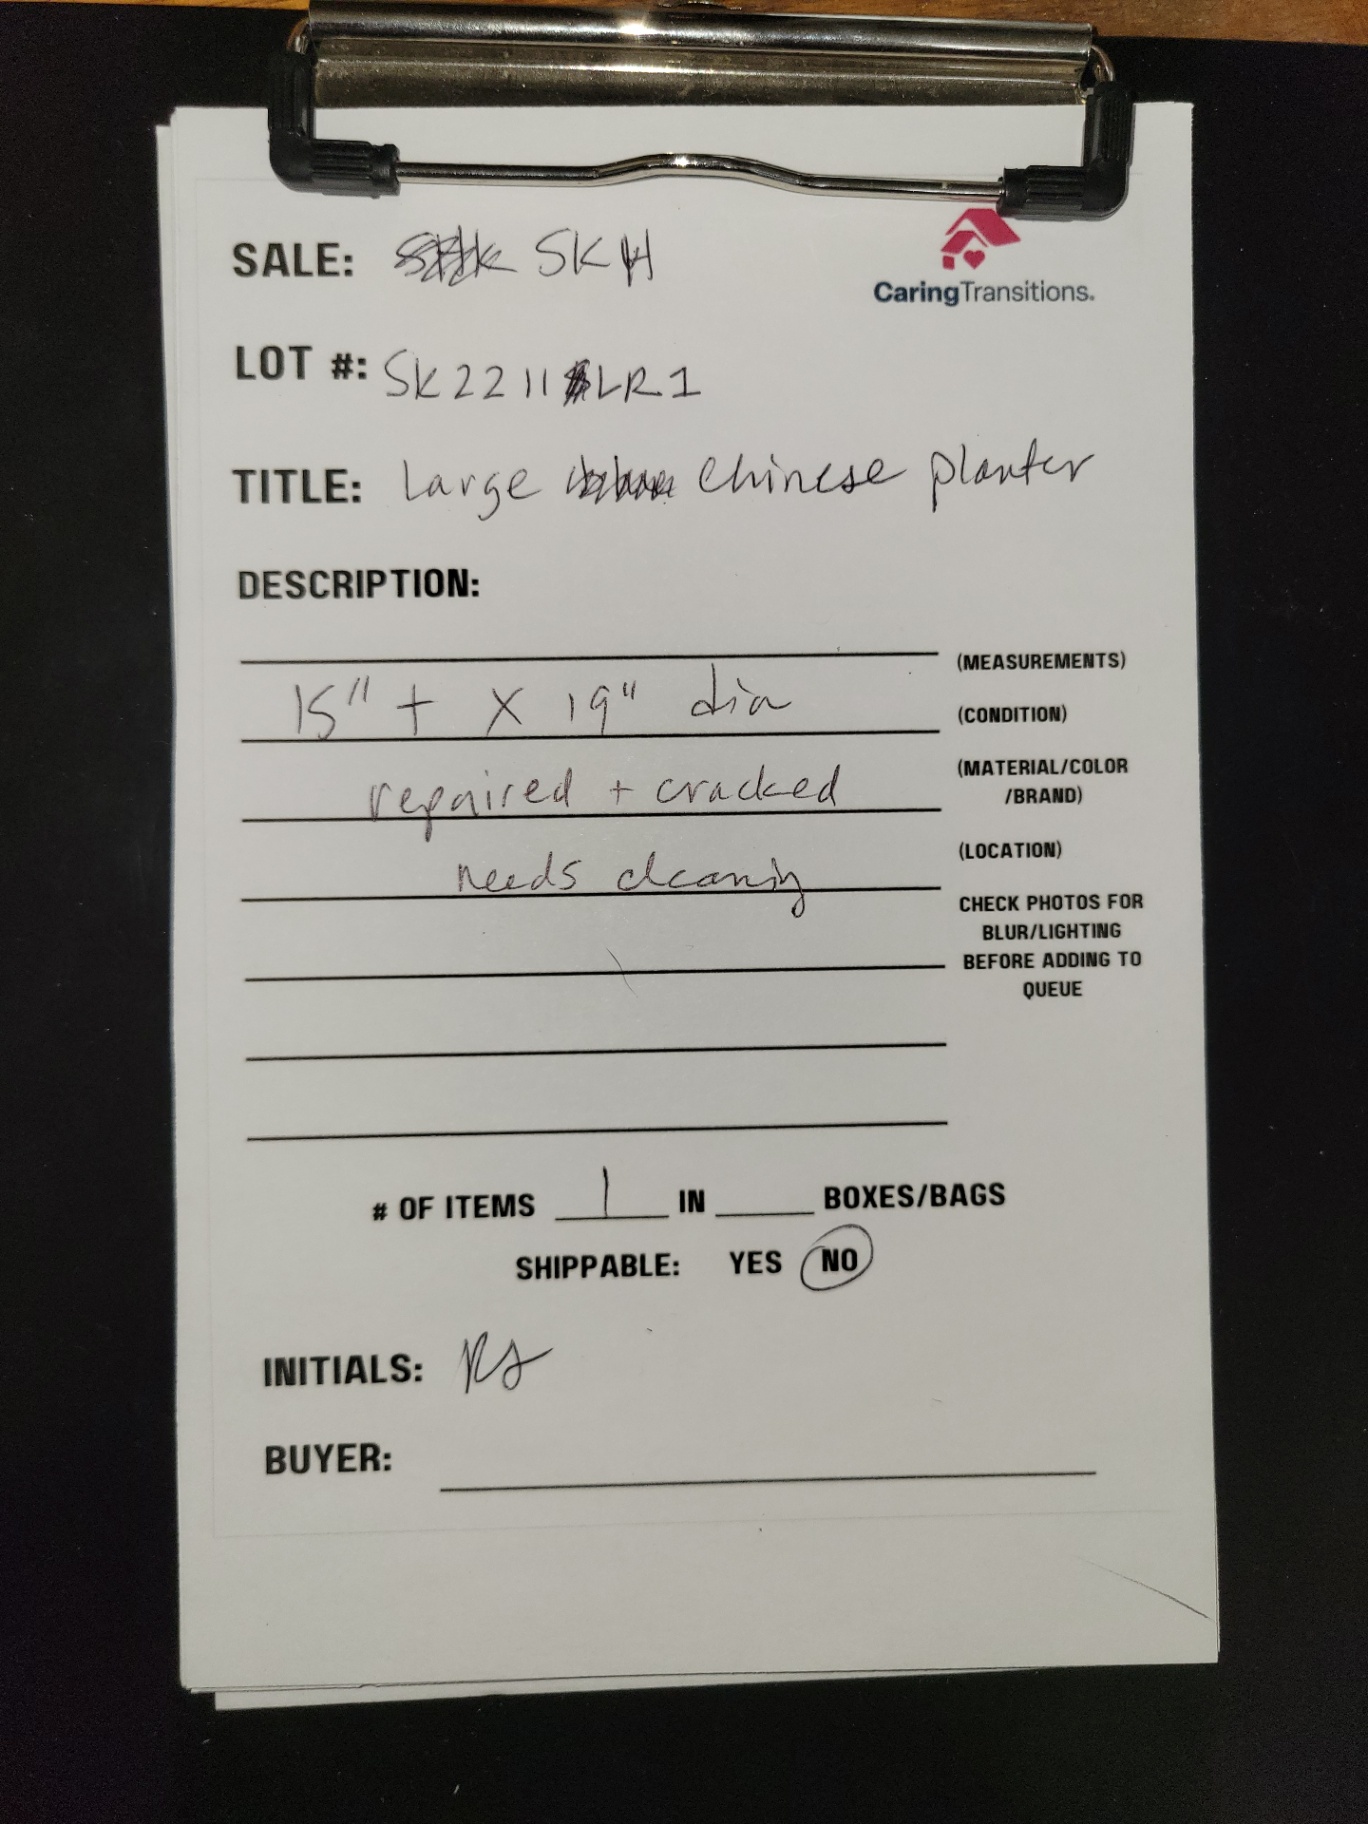 SALE: SKH
CaringTransitions.
LOT #: SK2211LR1
TITLE: Large Chinese planter
DESCRIPTION:
(MEASUREMENTS)
15" t X 19" dia
(CONDITION)
(MATERIAL/COLOR
/BRAND)
repaired + cracked
(LOCATION)
needs cleaning
CHECK PHOTOS FOR
BLUR/LIGHTING
BEFORE ADDING TO
QUEUE
# OF ITEMS 1 IN BOXES/BAGS
SHIPPABLE: YES NO
INITIALS:
BUYER: